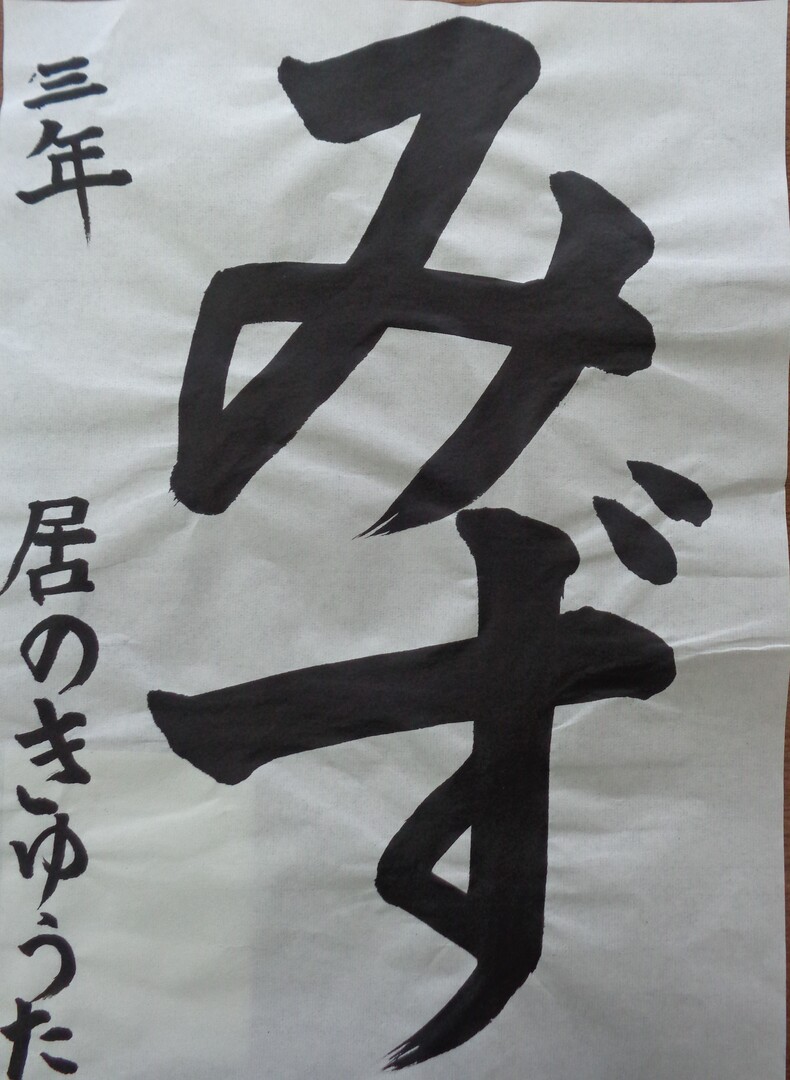 みず
三年 居のきゅうた